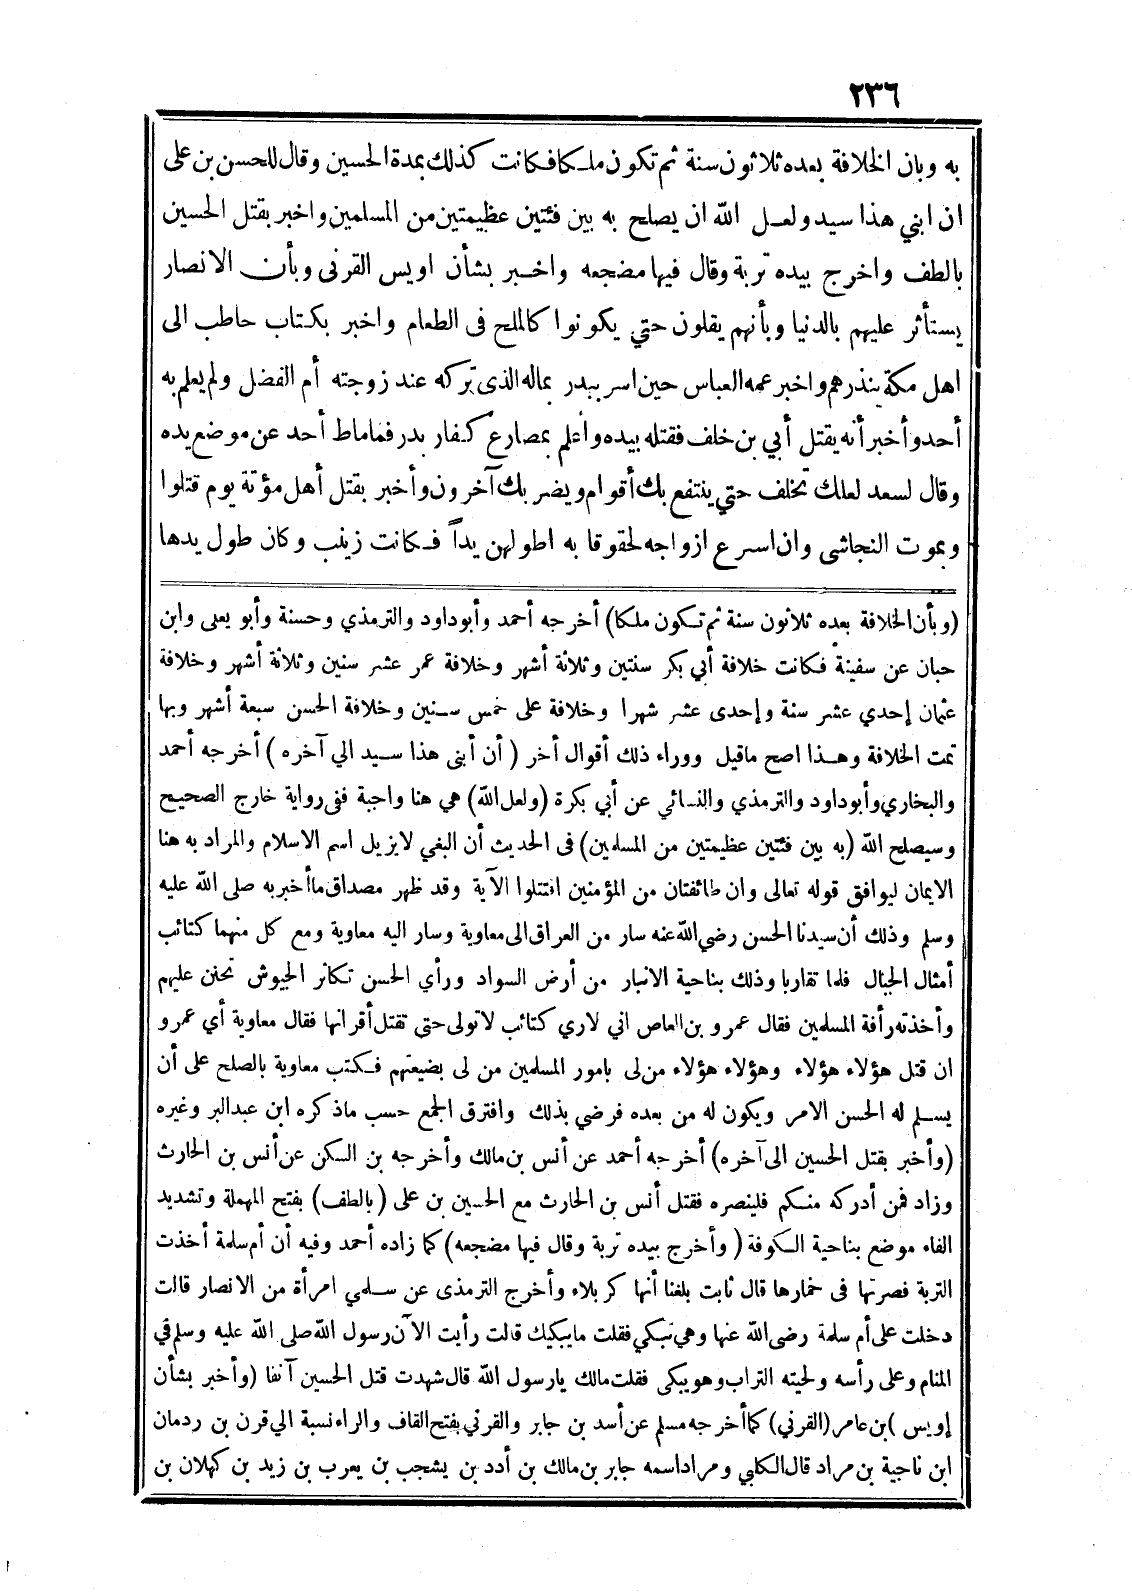 ٢٣٦
به وبان الخلافة بعده ثلاثون سنة ثم تكون ملكا فكانت كذلك بمدة الحسين وقال للحسن بن على
ان ابني هذا سيد ولعل الله ان يصلح به بين فئتين عظيمتين من المسلمين واخبر بقتل الحسين
بالطف واخرج بيده تربة وقال فيها مضجعه واخبر بشأن اويس القرنى وبأن الانصار
يستأثر عليهم بالدنيا وبأنهم يقلون حتي يكونوا كالملح فى الطعام واخبر بكتاب حاطب الى
اهل مكة ينذرهم واخبر عمه العباس حين اسر ببدر بماله الذى تركه عند زوجته أم الفضل ولم يعلم به
أحد وأخبر أنه يقتل أبي بن خلف فقتله بيده وأعلم بمصارع كفار بدر فما ماط أحد عن موضع يده
وقال لسعد لعلك تخلف حتي ينتفع بك أقوام ويضر بك آخرون وأخبر بقتل أهل مؤتة يوم قتلوا
وبموت النجاشى وان اسرع ازواجه لحقوقا به اطولهن يداً فكانت زينب وكان طول يدها
(وبأن الخلافة بعده ثلاثون سنة ثم تكون ملكا) أخرجه أحمد وأبو داود والترمذي وحسنة وأبو يعلى وابن
حبان عن سفينة فكانت خلافة أبي بكر سنتين وثلاثة أشهر وخلافة عمر عشر سنين وثلاثة أشهر وخلافة
عثمان إحدي عشر سنة وإحدى عشر شهرا وخلافة على خمس سنين وخلافة الحسن سبعة أشهر وبها
تمت الخلافة وهذا اصح ماقيل ووراء ذلك أقوال أخر ( أن أبنى هذا سيد الي آخره ) أخرجه أحمد
والبخاري وأبو داود والترمذي والنسائي عن أبي بكرة (ولعل الله) هي هنا واجبة ففى رواية خارج الصحيح
وسيصلح الله (به بين فئتين عظيمتين من المسلمين) فى الحديث أن البغي لايزيل اسم الاسلام والمراد به هنا
الايمان ليوافق قوله تعالى وان طائفتان من المؤمنين اقتتلوا الآية وقد ظهر مصداق ماأخبر به صلى الله عليه
وسلم وذلك أن سيدنا الحسن رضي الله عنه سار من العراق الى معاوية وسار اليه معاوية ومع كل منهما كتائب
أمثال الجبال فلما تقاربا وذلك بناحية الانبار من أرض السواد ورأي الحسن تكاثر الجيوش تحنن عليهم
وأخذته رأفة المسلمين فقال عمرو بن العاص اني لاري كتائب لاتولى حتى تقتل أقرانها فقال معاوية أي عمرو
ان قتل هؤلاء هؤلاء وهؤلاء هؤلاء من لى بامور المسلمين من لى بضيعتهم فكتب معاوية بالصلح على أن
يسلم له الحسن الامر ويكون له من بعده فرضي بذلك وافترق الجمع حسب ماذكره ابن عبدالبر وغيره
(وأخبر بقتل الحسين الى آخره) أخرجه أحمد عن أنس بن مالك وأخرجه بن السكن عن أنس بن الحارث
وزاد فمن أدركه منكم فلينصره فقتل أنس بن الحارث مع الحسين بن على (بالطف) بفتح المهملة وتشديد
الفاء موضع بناحية الكوفة ( وأخرج بيده تربة وقال فيها مضجعه) كما زاده أحمد وفيه أن أم سلمة أخذت
التربة فصرتها فى خمارها قال ثابت بلغنا أنها كربلاء وأخرج الترمذى عن سلمي امرأة من الانصار قالت
دخلت على أم سلمة رضى الله عنها وهي تبكي فقلت مايبكيك قالت رأيت الآن رسول الله صلى الله عليه وسلم في
المنام وعلى رأسه ولحيته التراب وهو يبكى فقلت مالك يارسول الله قال شهدت قتل الحسين آنفا (وأخبر بشأن
إويس ) بن عامر (القرني) كما أخرجه مسلم عن أسد بن جابر والقرني بفتح القاف والراء نسبة الي قرن بن ردمان
ابن ناجية بن مراد قال الكلبي ومراد اسمه جابر بن مالك بن أدد بن يشجب بن يعرب بن زيد بن كهلان بن